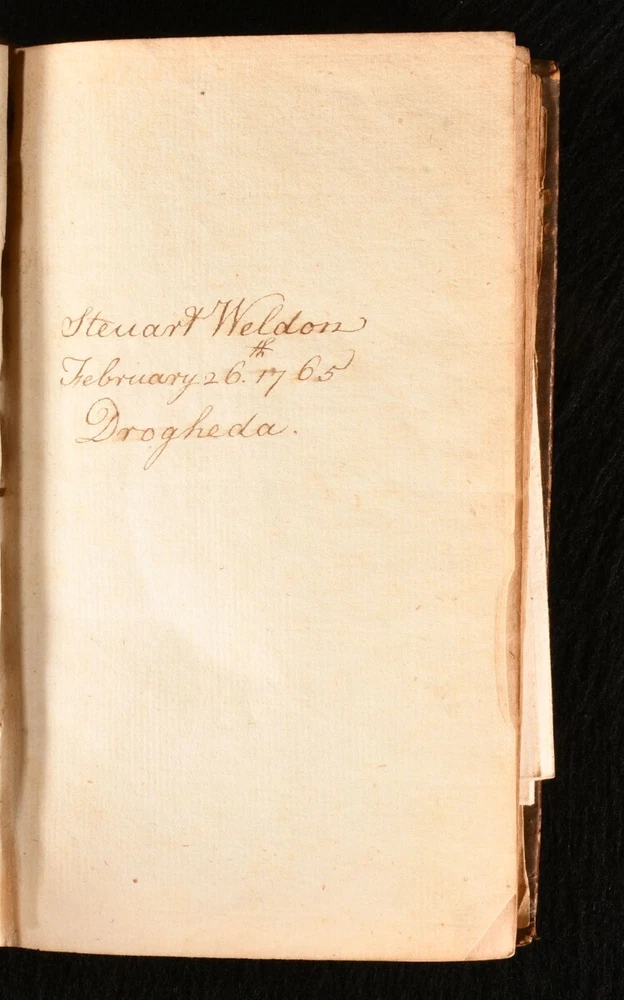 Steuart Weldon
February 26.th 1765
Drogheda.